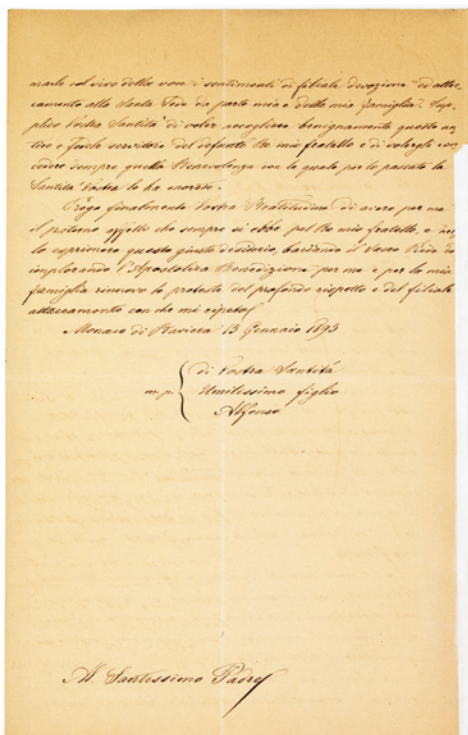 marlo col vivo della voce i sentimenti di filiale devozione ed attac=
camento alla Santa Sede da parte mia e della mia famiglia. Sup=
plico Vostra Santità di voler accogliere benignamente questo an=
tico e fedele servitore del defunto Re mio fratello e di volergli con=
cedere sempre quella Benevolenza con la quale per lo passato la
Santità Vostra lo ha onorato.
Prego finalmente Vostra Beatitudine di avere per me
il paterno affetto che sempre si ebbe pel Re mio fratello, e nel=
lo esprimere questo giusto desiderio, baciando il Sacro Piede ed
implorando l'Apostolica Benedizione per me e per la mia
famiglia rinnovo le proteste del profondo rispetto e del filiale
attaccamento con che mi ripeto
Monaco di Baviera 15 Gennaio 1895
di Vostra Santità
m. p. Umilissimo figlio
Alfonso
Al Santissimo Padre